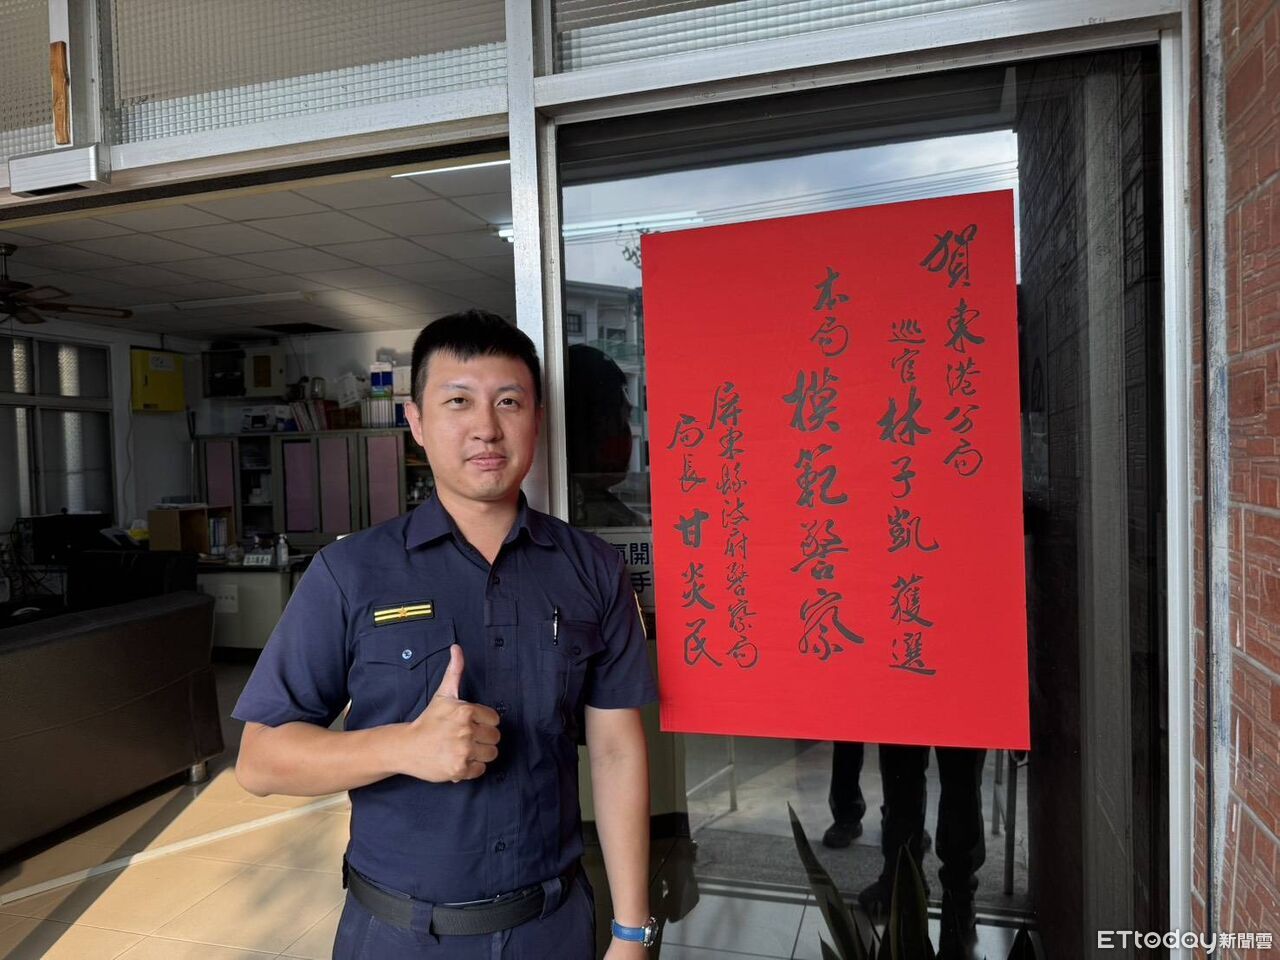 賀東港分局
巡官林子凱獲選
本局模範警察
屏東縣政府警察局
局長甘炎民
氣開
手
ETtoday新聞雲